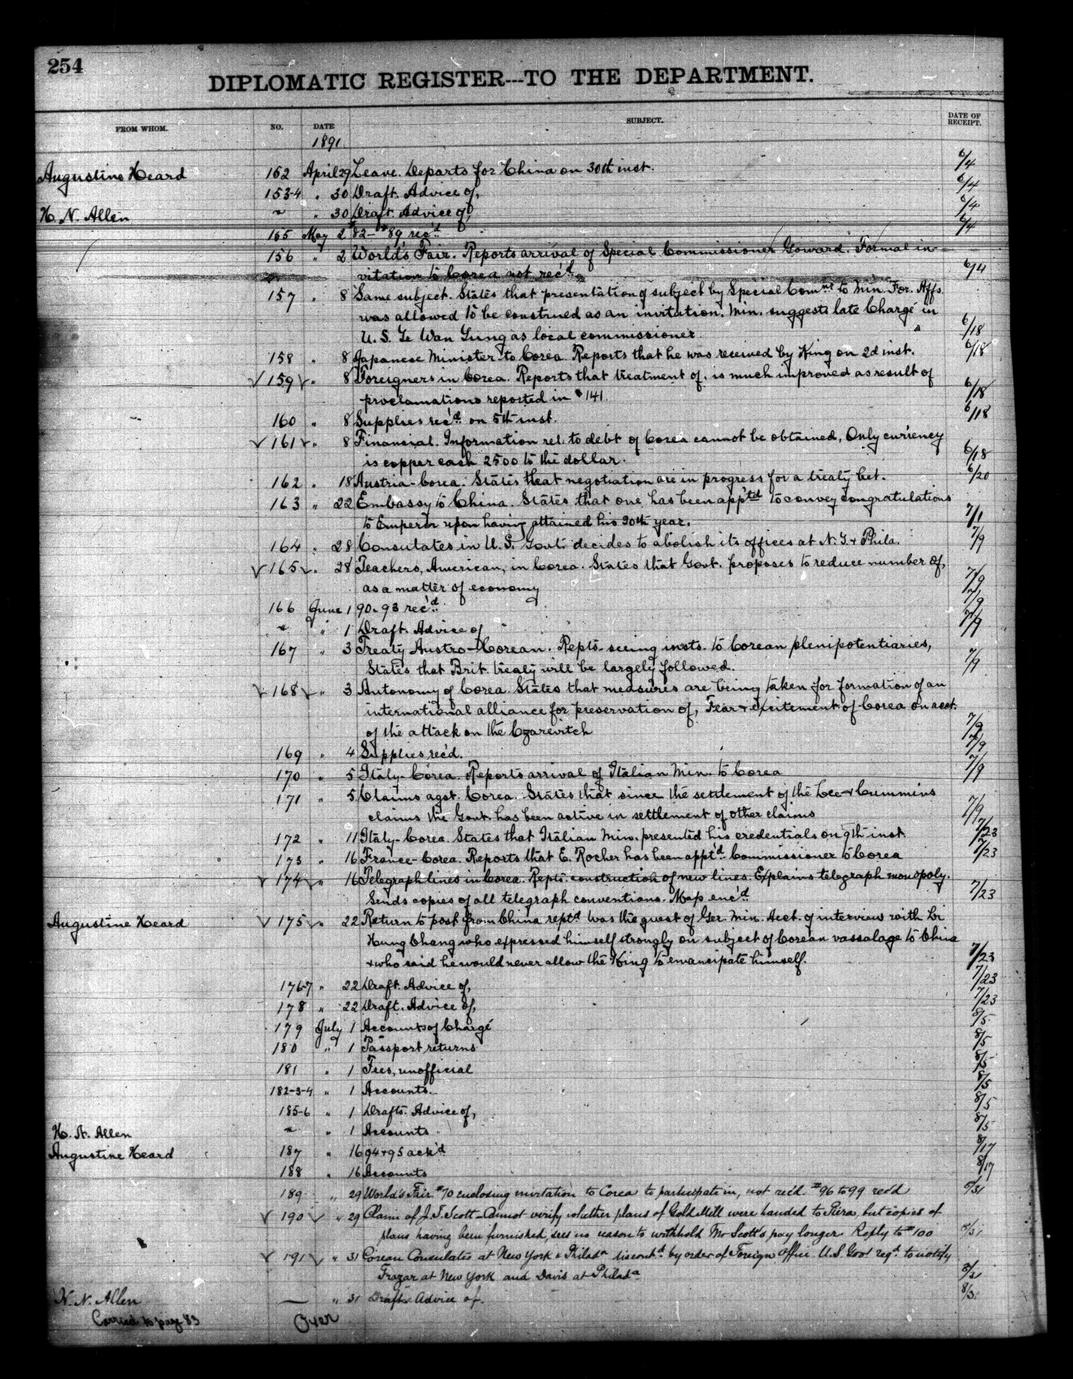 254
DIPLOMATIC REGISTER---TO THE DEPARTMENT.
FROM WHOM. NO. DATE SUBJECT. DATE OF RECEIPT.
1891
Augustine Heard 152 April 29 Leave. Departs for China on 30th inst. 6/4
153-4 " 30 Draft. Advice of, 6/4
H. N. Allen " 30 Draft. Advice of, 6/4
155 May 2 #82-#89 rec'd 6/4
156 " 2 World's Fair. Reports arrival of Special Commissioner Goward. Formal in-
vitation to Corea not rec'd. 6/4
157 " 8 Same subject. States that presentation of subject by Special Comr. to Min. For. Affs.
was allowed to be construed as an invitation. Min. suggests late Chargé in
U.S. Ye Wan Yung as local commissioner 6/18
158 " 8 Japanese Minister to Corea. Reports that he was received by King on 2d inst. 6/18
159 " 8 Foreigners in Corea. Reports that treatment of, is much improved as result of
proclamations reported in #141. 6/18
160 " 8 Supplies rec'd on 5th inst. 6/18
161 " 8 Financial. Information rel. to debt of Corea cannot be obtained, Only currency
is copper cash 2500 to the dollar. 6/18
162 " 18 Austria-Corea. States that negotiation are in progress for a treaty bet. 6/20
163 " 22 Embassy to China. States that one has been app'td to convey congratulations
to Emperor upon having attained his 20th year. 7/1
164 " 28 Consulates in U.S. Govt. decides to abolish its offices at N.Y. & Phila. 7/9
165 " 28 Teachers, American, in Corea. States that Govt. proposes to reduce number of,
as a matter of economy 7/9
166 June 1 90-93 rec'd. 7/9
" 1 Draft. Advice of 7/9
167 " 3 Treaty Austro-Corean. Repts. seeing insts. to Corean plenipotentiaries,
States that Brit. treaty will be largely followed. 7/9
168 " 3 Autonomy of Corea. States that measures are being taken for formation of an
international alliance for preservation of, Fear & excitement of Corea on acct.
of the attack on the Czarevitch 7/9
169 " 4 Supplies rec'd. 7/9
170 " 5 Italy-Corea. Reports arrival of Italian Min. to Corea 7/9
171 " 5 Claims agst. Corea. States that since the settlement of the Lee & Cummins
claims the Govt. has been active in settlement of other claims 7/9
172 " 11 Italy-Corea. States that Italian Min. presented his credentials on 9th inst 7/23
173 " 16 France-Corea. Reports that E. Rocher has been appt'd Commissioner to Corea 7/23
174 " 16 Telegraph lines in Corea. Repts. construction of new lines. Explains telegraph monopoly.
Sends copies of all telegraph conventions. Map enc'd 7/23
Augustine Heard 175 " 22 Return to post from China rept'd. Was the guest of Ger. Min. Acct. of interview with Li
Hung Chang who expressed himself strongly on subject of Corean vassalage to China
& who said he would never allow the King to emancipate himself. 7/23
176-7 " 22 Draft. Advice of, 7/23
178 " 22 Draft. Advice of, 7/23
179 July 1 Accounts of Chargé 8/5
180 " 1 Passport returns 8/5
181 " 1 Fees, unofficial 8/5
182-3-4 " 1 Accounts. 8/5
185-6 " 1 Drafts. Advice of, 8/5
H. N. Allen " 1 Accounts 8/5
Augustine Heard 187 " 16 94 & 95 ack'd 8/17
188 " 16 Accounts 8/17
189 " 29 World's Fair. #70 enclosing invitation to Corea to participate in, not rec'd. #96 to 99 rec'd 8/31
190 " 29 Claim of J. F. Scott. Cannot verify whether plans of Gold Mill were handed to but copies of
plans having been furnished, sees no reason to withhold Mr Scott's pay longer. Reply to #100 8/31
191 " 31 Corean Consulates at New York & Philada. discontd. by order of Foreign Office. U.S. Govt reqd. to notify
Frazar at New York and Davis at Philada. 8/31
H. N. Allen — " 31 Draft. Advice of. 8/31
Carried to page 83 Over